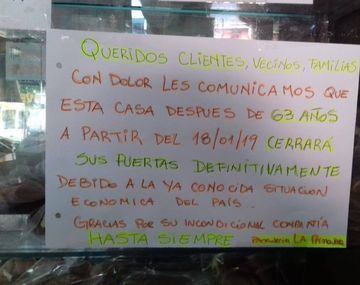 QUERIDOS CLIENTES, VECINOS, FAMILIAS
CON DOLOR LES COMUNICAMOS QUE
ESTA CASA DESPUES DE 63 AÑOS
A PARTIR DEL 18/01/19 CERRARÁ
SUS PUERTAS DEFINITIVAMENTE
DEBIDO A LA YA CONOCIDA SITUACION
ECONOMICA DEL PAIS.
GRACIAS POR SU INCONDICIONAL COMPAÑIA
HASTA SIEMPRE Panaderia LA